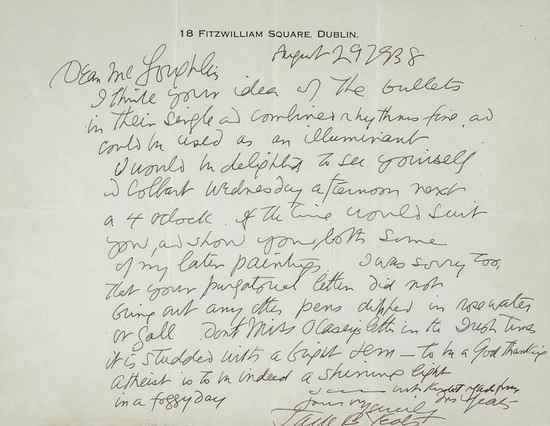 18 FITZWILLIAM SQUARE, DUBLIN.
August 29 1938
Dear Mc Loughlin
I think your idea of the bullets
in their single and combined rhythms fine, and
could be used as an illuminant
I would be delighted to see yourself
and Colbert Wednesday afternoon next
a 4 oclock if the time would suit
you, and show you, both some
of my later paintings I was sorry too,
that your purgatorial letter did not
bring out any other pens dipped in rosewater
or gall Dont Miss O Caseys letter in the Irish Times
it is studded with a bright gem — to be a God thanking
atheist is to be indeed a shining light
in a foggy day
with kindest regards from
Mrs Yeats
Yours sincerely
Jack B Yeats